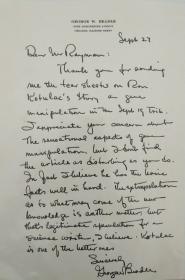 GEORGE W. BEADLE
Sept 27
Dear Mr Rayman:
Thank you for sending
me the tear sheets on Ron
Kotulak's story on gene
manipulation in the Sept 19 Trib.
I appreciate your concern about
the sensational aspects of gene
manipulation, but I don't find
the article as disturbing as you do.
In fact I believe he has the
facts well in hand. The extrapolation
as to what may come of the new
knowledge is another matter, but
that's legitimate speculation for a
science writer, I believe. Kotulak
is one of the better ones
Sincerely
George Beadle